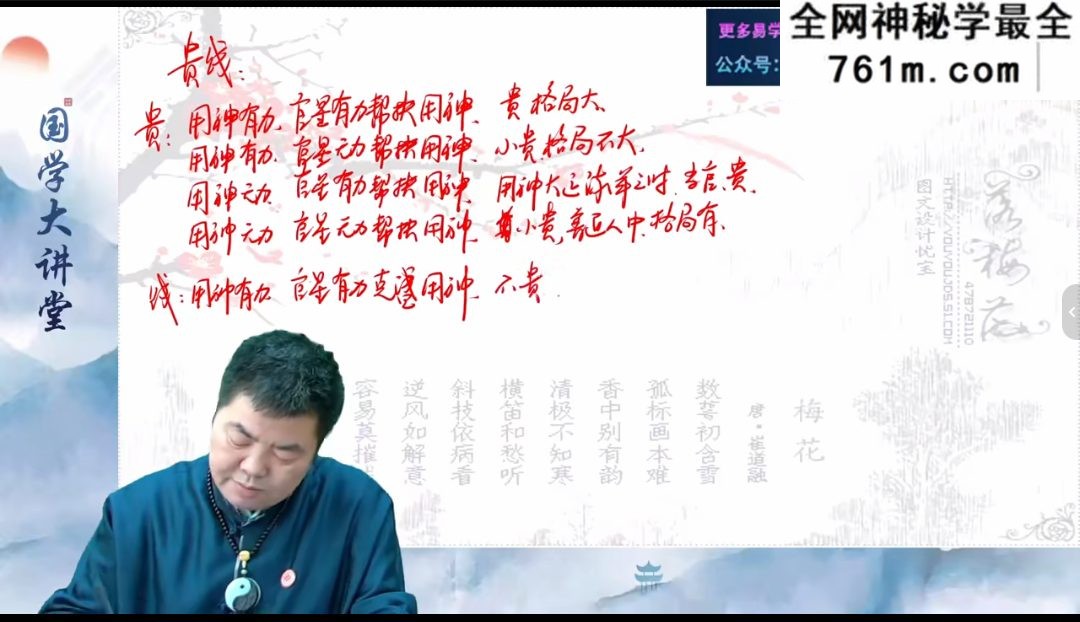 全网神秘学最全
761m.com
更多易学
公众号:
国学大讲堂
贵贱:
贵: 用神有力、官星有力帮扶用神、贵格局大、
用神有力、官星无力帮扶用神、小贵,格局不大、
用神无力、官星有力帮扶用神、用神大运流年之时,当官、贵、
用神无力 官星无力帮扶用神、小贵,局有、
贱: 用神有力 官星有力克泄用神、不贵.
落梅花
图文设计忧宝
478721110
梅花
唐·崔道融
数萼初含雪
孤标画本难
香中别有韵
清极不知寒
横笛和愁听
斜技依病看
逆风如解意
容易莫摧